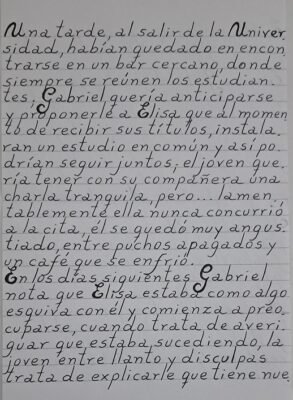 Una tarde, al salir de la Univer
sidad, habían quedado en encon
trarse en un bar cercano, donde
siempre se reúnen los estudian.
tes; Gabriel quería anticiparse
y proponerle a Elisa que al momen
to de recibir sus títulos, instala,
ran un estudio en común y así po.
drían seguir juntos; el joven que,
ría tener con su compañera una
charla tranquila, pero... lamen,
tablemente ella nunca concurrió
a la cita, él se quedó muy angus.
tiado, entre puchos apagados y
un café que se enfrió.
En los días siguientes Gabriel,
nota que Elisa estaba como algo
esquiva con él y comienza a preo.
cuparse, cuando trata de averi.
guar que estaba sucediendo, la
joven entre llanto y disculpas
trata de explicarle que tiene nue.